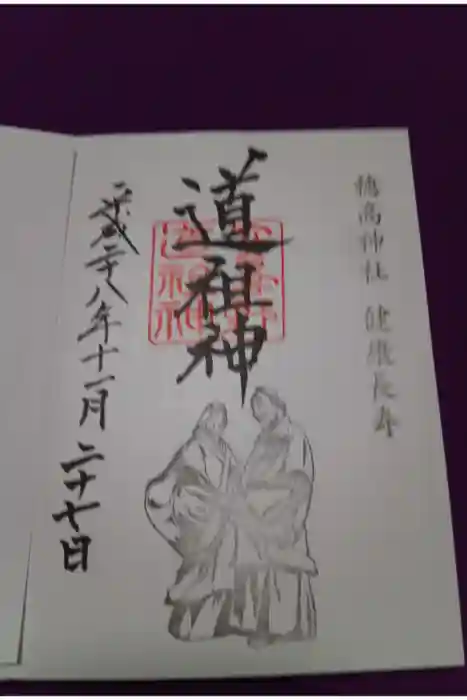 穂高神社 健康長寿
道祖神
平成二十八年十一月二十七日